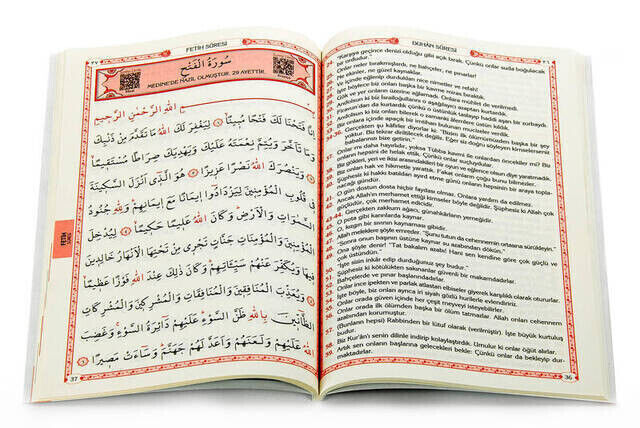 FETİH SÛRESİ
٣٧
سُورَةُ الْفَتْحِ
MEDİNE'DE NAZİL OLMUŞTUR. 29 AYETTİR.
بِسْمِ اللهِ الرَّحْمٰنِ الرَّحِيمِ
اِنَّا فَتَحْنَا لَكَ فَتْحًا مُبِينًا ﴿١﴾ لِيَغْفِرَ لَكَ اللهُ مَا تَقَدَّمَ مِنْ ذَنْبِكَ
وَمَا تَاَخَّرَ وَيُتِمَّ نِعْمَتَهُ عَلَيْكَ وَيَهْدِيَكَ صِرَاطًا مُسْتَقِيمًا ﴿٢﴾
وَيَنْصُرَكَ اللهُ نَصْرًا عَزِيزًا ﴿٣﴾ هُوَ الَّذِى اَنْزَلَ السَّكِينَةَ
فِى قُلُوبِ الْمُؤْمِنِينَ لِيَزْدَادُوا اِيمَانًا مَعَ اِيمَانِهِمْ وَلِلّٰهِ جُنُودُ
السَّمٰوَاتِ وَالْاَرْضِ وَكَانَ اللهُ عَلِيمًا حَكِيمًا ﴿٤﴾ لِيُدْخِلَ
الْمُؤْمِنِينَ وَالْمُؤْمِنَاتِ جَنَّاتٍ تَجْرِى مِنْ تَحْتِهَا الْاَنْهَارُ خَالِدِينَ
فِيهَا وَيُكَفِّرَ عَنْهُمْ سَيِّئَاتِهِمْ وَكَانَ ذٰلِكَ عِنْدَ اللهِ فَوْزًا عَظِيمًا
﴿٥﴾ وَيُعَذِّبَ الْمُنَافِقِينَ وَالْمُنَافِقَاتِ وَالْمُشْرِكِينَ وَالْمُشْرِكَاتِ
الظَّانِّينَ بِاللهِ ظَنَّ السَّوْءِ عَلَيْهِمْ دَائِرَةُ السَّوْءِ وَغَضِبَ
اللهُ عَلَيْهِمْ وَلَعَنَهُمْ وَاَعَدَّ لَهُمْ جَهَنَّمَ وَسَاءَتْ مَصِيرًا ﴿٦﴾
FETİH
37
DUHÂN SÛRESİ
٣٦
"Karşıya geçince denizi olduğu gibi açık bırak. Çünkü onlar suda boğulacak
bir ordudur."
Onlar neler bırakmışlardı, ne bahçeler, ne pınarlar!
Ne ekinler, ne güzel konaklar.
Ve içinde eğlenip durdukları nice nimetler ve refah!
İşte böylece biz onları başka bir kavme miras bıraktık.
Gök ve yer onların üzerine ağlamadı. Onlara mühlet de verilmedi.
Andolsun ki biz İsrailoğullarını o aşağılayıcı azaptan kurtardık.
Firavun'dan da kurtardık çünkü o üstünlük taslayıp haddi aşan bir zorbaydı.
Andolsun ki biz onları bilerek o zamanki âlemlere üstün kıldık.
Biz onlara içinde apaçık bir imtihan bulunan mucizeler verdik.
34-36. Gerçekten şu kâfirler diyorlar ki: "Bizim ilk ölümümüzden başka bir şey
yoktur. Biz tekrar diriltilecek değiliz. Eğer siz doğru söyleyen kimselerseniz
babalarımızı bize getirin."
37. Onlar mı daha hayırlıdır, yoksa Tübba kavmi ile onlardan öncekiler mi? Biz
onların hepsini de helak ettik. Çünkü onlar suçluydular.
38. Biz gökleri, yeri ve ikisi arasındakileri bir oyun ve eğlence olsun diye yaratmadık.
39. Biz onları hak ve hikmetle yarattık. Fakat onların çoğu bunu bilmezler.
40. Şüphesiz ki hakkı batıldan ayırd etme günü onların hepsinin bir araya topla-
nacağı gündür.
41. O gün dostun dosta hiçbir faydası olmaz. Onlara yardım da edilmez.
42. Ancak Allah'ın merhamet ettiği kimseler böyle değildir. Şüphesiz ki Allah çok
güçlüdür, çok merhamet edicidir.
43-44. Gerçekten zakkum ağacı, günahkârların yemeğidir.
45. O pota gibi karınlarda kaynar.
46. O, kızgın bir sıvının kaynaması gibidir.
47. Allah meleklere şöyle emreder. "Şunu tutun da cehennemin ortasına sürükleyin."
48. "Sonra onun başının üstüne kaynar su azabından dökün."
49. Ona şöyle denir! "Tat bakalım azabı! Hani sen kendine göre çok güçlü ve
çok üstündün.
50. "İşte sizin inkâr edip durduğunuz şey budur."
51. Şüphesiz ki kötülükten sakınanlar güvenli bir makamdadırlar.
52. Bahçelerde ve pınar başlarındadırlar.
53. Onlar ince ipekten ve parlak atlastan elbiseler giyerek karşılıklı olarak otururlar.
54. İşte böyle, biz onları ayrıca iri siyah gözlü hurilerle evlendiririz.
55. Onlar orada güven içinde her çeşit meyveyi isteyebilirler.
56. Onlar orada ilk ölümden başka bir ölüm tatmazlar. Allah onları cehennem
azabından korumuştur.
57. (Bunların hepsi) Rabbinden bir lütuf olarak (verilmiştir). İşte büyük kurtuluş
budur.
58. Biz Kur'an'ı senin dilinle indirip kolaylaştırdık. Umulur ki onlar öğüt alırlar.
59. Artık sen onların başlarına gelecekleri bekle: Çünkü onlar da bekleyip dur-
maktadırlar.
36